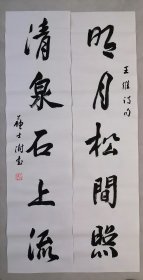 明月松間照
王維詩句
清泉石上流